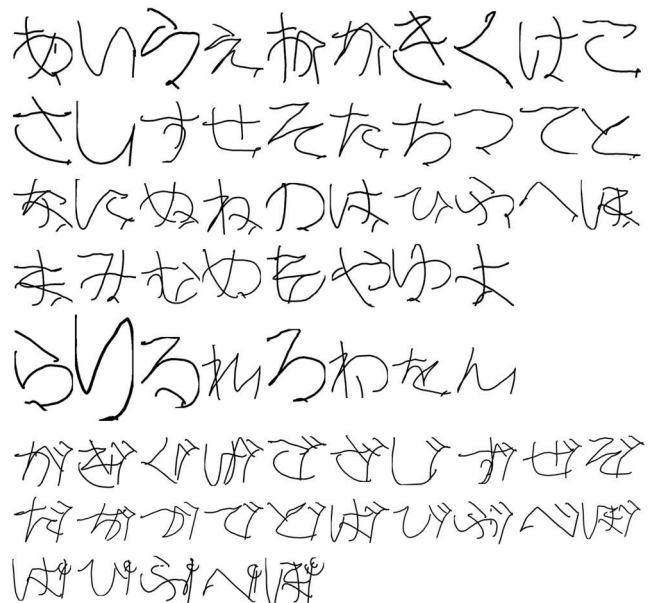 あいうえおかきくけこ
さしすせそたちつてと
なにぬねのはひふへほ
まみむめもやゆよ
らりるれろわをん
がぎぐげござじずぜぞ
だぢづでどばびぶべぼ
ぱぴぷぺぽ